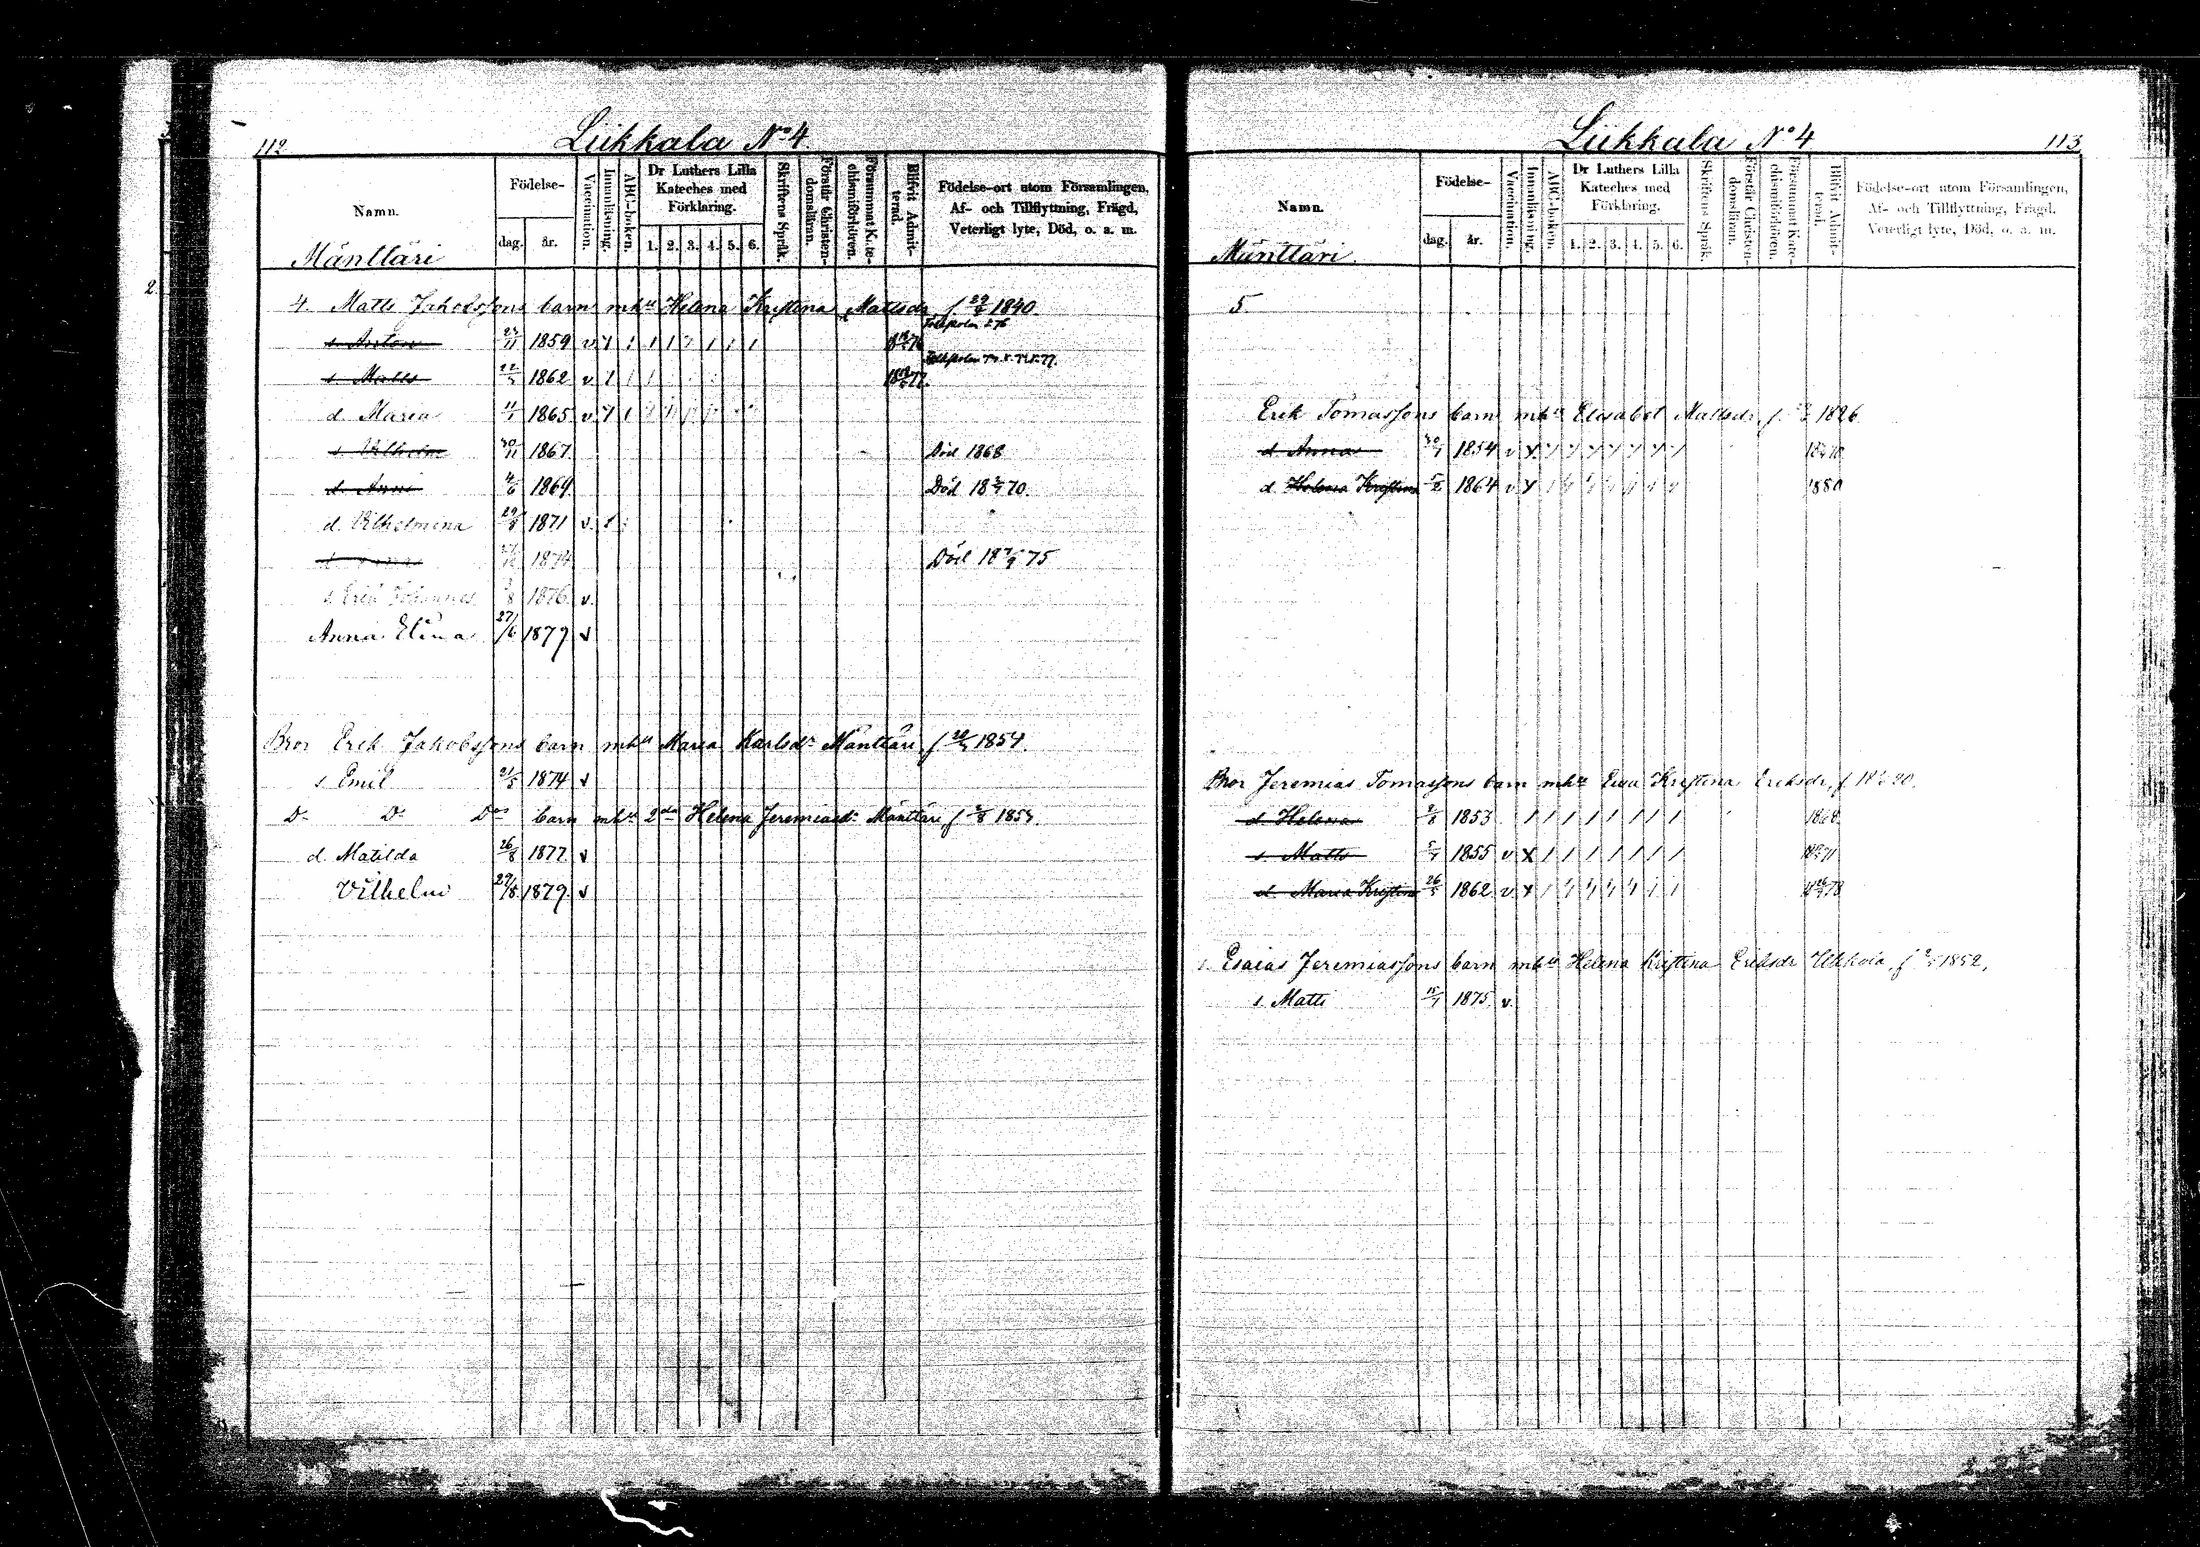 112.
Liikkala No 4
Namn.
Mänttäri
Födelse-
dag.
år.
Vaccination.
Innanläsning.
ABC-boken.
Dr Luthers Lilla
Kateches med
Förklaring.
1. 2. 3. 4. 5. 6.
Skriftens Språk.
Förstår Christen-
domsläran.
Försummat Kate-
chismiförhören.
Blifvit Admit-
terad.
Födelse-ort utom Församlingen,
Af- och Tillflyttning, Frägd,
Veterligt lyte, Död, o. a. m.
2.
4. Matts Jakobssons barn mhu Helena Kristina Mattsdr f 1840.
s. Anton 23/11 1859 v
s. Matts 1862 v
d. Maria 11/1 1865 v
s. Vilhelm 30/11 1867 Död 1868
d. Anni 4/6 1869 Död 18 70.
d. Vilhelmina 29/8 1871 v.
1874 Död 18 75
s. Erik Johannes /8 1876 v.
Anna Elina 27/6 1879 v
Bror Erik Jakobssons barn mhu Maria Karlsdr Mänttäri, f 1854.
s. Emil 21/5 1874 v
Do Do Dos barn mhu 2da Helena Jeremiasdr Mänttäri f 2/8 1853.
d. Matilda 26/8 1877 v
Vilhelm 29/8 1879. v
Liikkala No 4
113
Namn.
Mänttäri.
Födelse-
dag.
år.
Vaccination.
Innanläsning.
ABC-boken.
Dr Luthers Lilla
Kateches med
Förklaring.
1. 2. 3. 4. 5. 6.
Skriftens Språk.
Förstår Christen-
domsläran.
Försummat Kate-
chismiförhören.
Blifvit Admit-
terad.
Födelse-ort utom Församlingen,
Af- och Tillflyttning, Frägd,
Veterligt lyte, Död, o. a. m.
5.
Erik Tomassons barn mhu Elisabet Mattsdr, f. 1826
d. Anna 1854 v
d. Helena Kristina 5/2 1864 v 1880
Bror Jeremias Tomassons barn mhu Eva Kristina Eriksdr, f. 18 20.
d. Helena 2/8 1853
s. Matts 1855 v
d. Maria Kristina 26/5 1862 v
s. Esaias Jeremiassons barn mhu Helena Kristina Eriksdr f 1852,
s. Matti 15/1 1875 v.